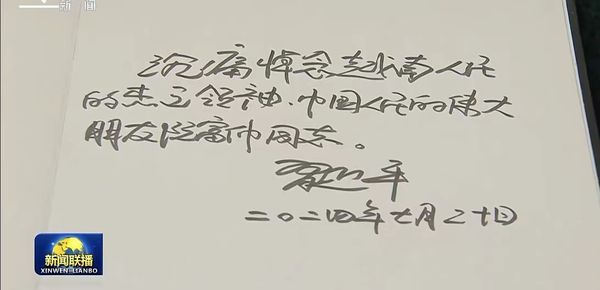 新闻
沉痛悼念越南人民
的杰出领袖、中国人民的伟大
朋友阮富仲同志。
习近平
二〇二四年七月二十日
新闻联播
XINWEN LIANBO